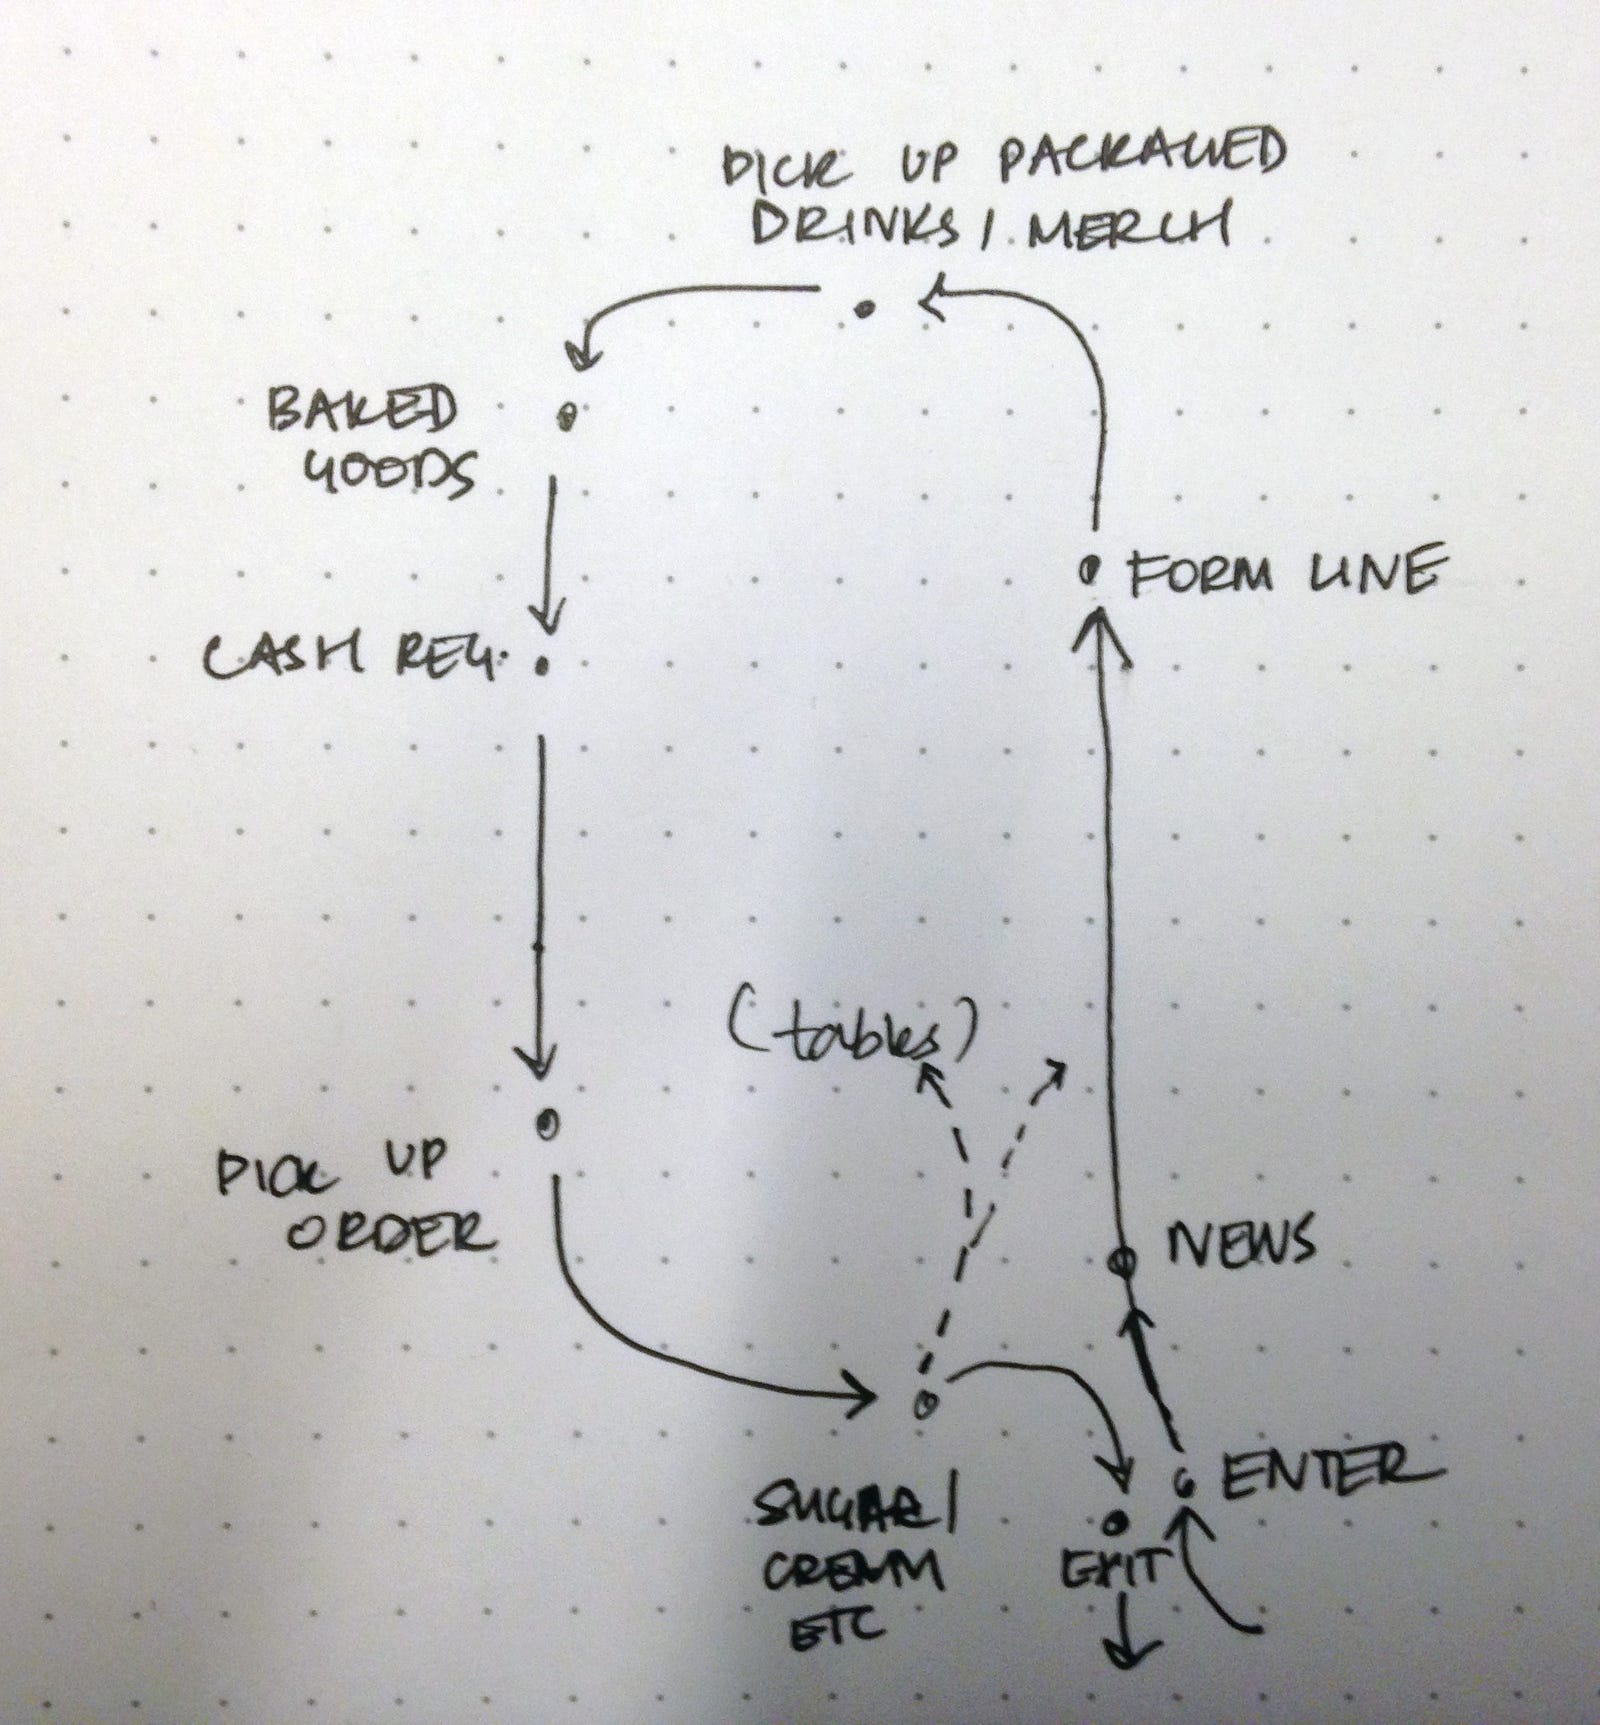 PICK UP PACKAGED
DRINKS / MERCH
BAKED
GOODS
FORM LINE
CASH REG.
(tables)
PICK UP
ORDER
NEWS
ENTER
SUGAR /
CREAM
ETC
EXIT